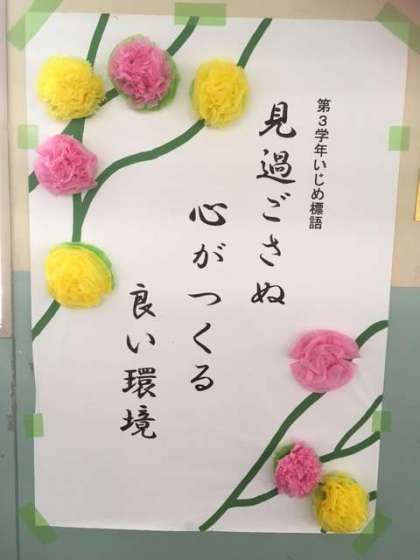 第3学年いじめ標語
見過ごさぬ
心がつくる
良い環境